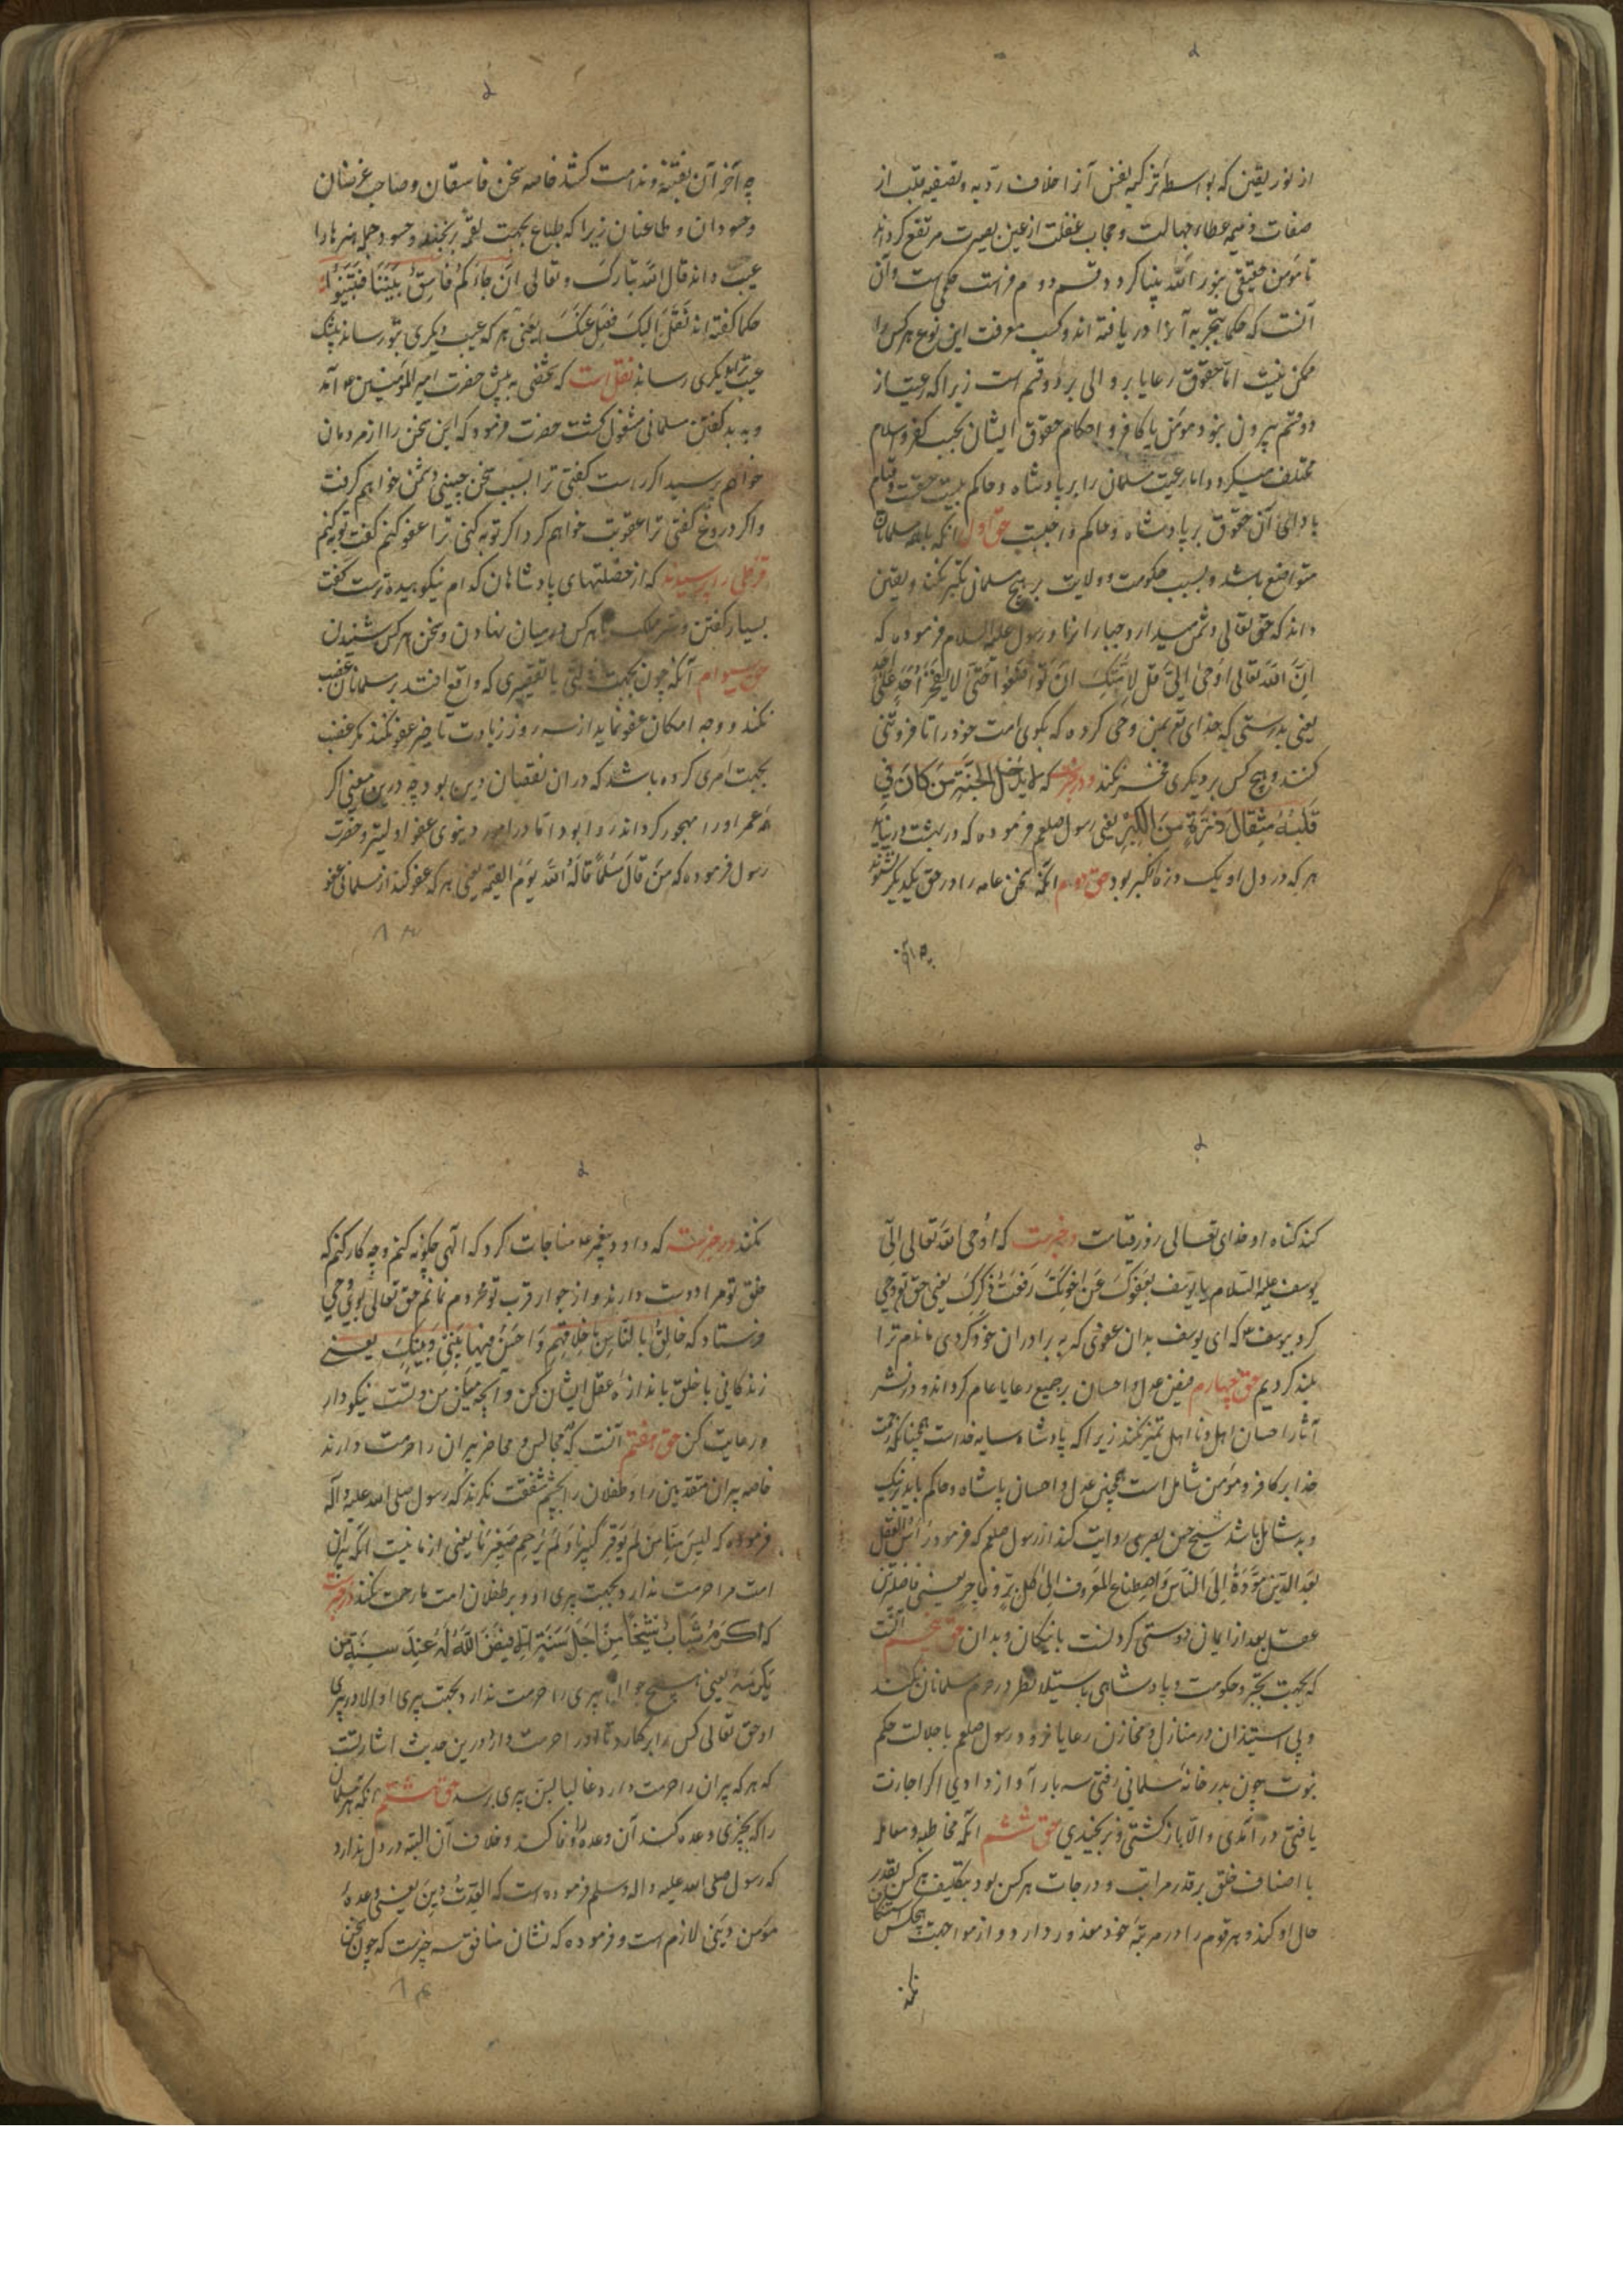 از نور یقین که بواسطه تزکیه نفس آنرا اخلاف ردیه و تصفیه قلب از
صفات ذمیمه غطاء جهالت و حجاب غفلت از عین بصیرت مرتفع کرداند
تا مؤمن حقیقی بنور الله بینا کردد و قسم دوم فراست حکمی است و آن
آنست که حکما بتجربه آنرا دریافته اند و کسب معرفت این نوع هر کس را
ممکن نیست اما حقوق رعایا بر والی بر دو قسم است زیرا که رعیت از
دو قسم بیرون نبود مؤمن یا کافر و احکام حقوق ایشان بحسب کفر و اسلام
مختلف میکردد اما رعیت مسلمان را بر پادشاه و حاکم بیست حقست و قیام
بادای آن حقوق بر پادشاه و حاکم واجبست حق اول آنکه با همه مسلمانان
متواضع باشد و بسبب حکومت و ولایت بر هیچ مسلمان تکبر نکند و یقین
داند که حق تعالی دشمن میدارد جبارانرا و رسول علیه السلام فرموده که
اِنَّ الله تعالی اوحی الیّ قل لامتک ان تواضعوا حتی لا یفخر احد علی احد
یعنی بدرستی که خدای تع بمن وحی کرده که بکوی امت خود را تا فروتنی
کنند و هیچ کس بر دیکری فخر نکند و در خبرست که لا یدخل الجنة من کان فی
قلبه مثقال ذرة من الکبر یعنی رسول صلعم فرموده که در بهشت در نیاید
هر که در دل او یک ذره کبر بود حق دوم آنکه سخن عامه را در حق یکدیکر نشنود
چه آخر آن
چه آخر آن بفتنه و ندامت کشد خاصه سخن فاسقان و صاحب غرضان
و حسودان و طاعنان زیرا که طماع بجهت لقمه رنجند و حسود جمله هنرها را
عیب داند قال الله تبارک و تعالی ان جاءکم فاسق بنبأ فتبینوا
حکما کفته اند نَقَلَ الیک فعل عنک یعنی هر که عیب دیکری بتو رساند بیشک
عیب ترا بدیکری رساند نقل است که شخصی به پیش حضرت امیر المؤمنین ع آمد
و به بد کفتن مسلمانی مشغول کشت حضرت فرمود که این سخن را از مردمان
خواهم پرسید اکر راست کفتی ترا بسبب سخن چینی دشمن خواهم کرفت
و اکر دروغ کفتی ترا عقوبت خواهم کرد و اکر توبه کنی ترا عفو کنم کفت توبه کنم
را پرسیدند که از خصلتهای پادشاهان کدام نکوهیده ترست کفت
بسیار کفتن و سر ملک با هر کس در میان نهادن و سخن هر کس شنیدن
حق سیوم آنکه چون بجهت زلتی یا تقصیری که واقع افتد بر مسلمانان غضب
نکند و وجه امکان عفو نماید از سه روز زیادت تاخیر عفو نکند مکر غضب
بجهت امری کرده باشد که در ان نقصان دین بود چه درین معنی اکر
همه عمر او را مهجور کرداند روا بود اما در امور دنیوی عفو اولیتر و حضرت
رسول فرموده که من قال مسلما قاله الله یوم القیمه یعنی هر که عفو کند از مسلمانی عفو
۸۳
کند کناه او خدای تعالی روز قیامت و در خبرست که اوحی الله تعالی الی
یوسف علیه السلام یا یوسف بعفوک عن اخوتک رفعت ذکرک یعنی حق تع وحی
کرد بیوسف ع که ای یوسف بدان عفوی که به برادران خود کردی ما نام ترا
بلند کردیم حق چهارم فیض عدل و احسان بر جمیع رعایا عام کرداند و در نشر
آثار احسان اهل و نا اهل تمیز نکند زیرا که پادشاه سایه خداست همچنانکه رحمت
خدا بر کافر و مؤمن شامل است همچنین عدل و احسان پادشاه و حاکم باید بر نیک
و بد شامل باشد شیخ حسن بصری روایت کند از رسول صلعم که فرمود رأس العقل
بعد الدین مودة الی الناس و اصطناع المعروف الی کل بر و فاجر یعنی فاضلترین
عقل بعد از ایمان دوستی کردنست با نیکان و بدان حق پنجم آنست
که بجهت تجبر و حکومت و پادشاهی باستیلا نظر در حرم مسلمانان نکند
و بی استیذان در منازل و مخازن رعایا نرود و رسول صلعم با جلالت حکم
نبوت چون بدر خانه مسلمانی رفتی سه بار آواز دادی اکر اجازت
یافتی در آمدی و الا باز کشتی و نرنجیدی حق ششم آنکه مخاطبه و معامله
با اصناف خلق بر قدر مراتب و درجات هر کس بود و تکلیف هر کس بقدر
حال او کند و هر قوم را در مرتبه خود معذور دارد و از مواجهت هیچکس استنکاف
نکند
نکند و در خبرست که داود پیغمبر ع مناجات کرد که الهی چکونه کنم و چه کار کنم که
خلق تو مرا دوست دارند و از جوار قرب تو محروم نمانم حق تعالی بوی وحی
فرستاد که خالق بالناس باخلاقهم و احسن فیما بینی و بینک یعنی
زندکانی با خلق باندازه عقل ایشان کن و آنچه میان من و تست نیکو دار
و رعایت کن حق هفتم آنست که مجالس و محاضر پیران را حرمت دارند
خاصه پیران متقدمین را و طفلان را بچشم شفقت نکرند که رسول صلی الله علیه و آله
فرموده که لیس منا من لم یوقر کبیرنا و لم یرحم صغیرنا یعنی از ما نیست آنکه پیران
امت مرا حرمت ندارد بجهت پیری او و بر طفلان امت ما رحمت نکند در خبرست
که ما اکرم شاب شیخا من اجل سنه الا قیض الله له عند سنه من
یکرمه یعنی هیچ جوانی پیری را حرمت ندارد بجهت پیری او الا در پیری
او حق تعالی کس را بر کمارد تا او را حرمت دارد و درین حدیث اشارتست
که هر که پیران را حرمت دارد غالبا بسن پیری برسد حق هشتم آنکه هر مسلمان
را که بچیزی وعده کند آن وعده را وفا کند و خلاف آن البته در دل ندارد
که رسول صلی الله علیه و اله و سلم فرموده است که العدة دین یعنی وعده
مؤمن دینی لازم است و فرموده که نشان منافق سه چیزست که چون سخن
۸۴